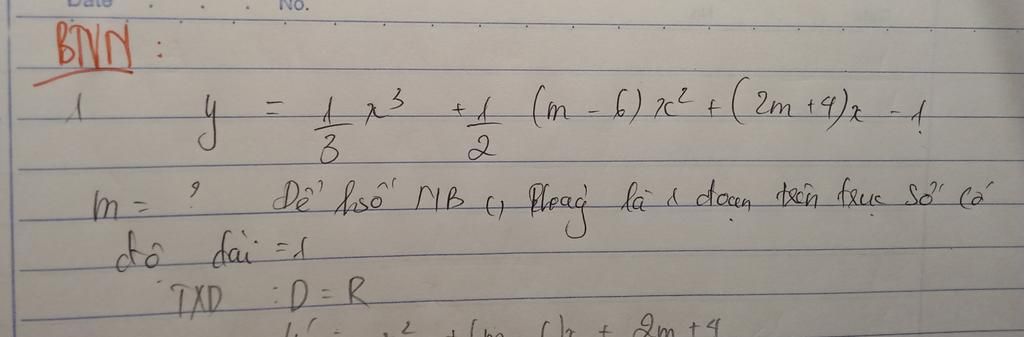 Date No.
BTVN :
1 y = 1/3 x³ + 1/2 (m - 6) x² + (2m + 4)x - 1
m = ? Để hsố NB là 1 đoạn trên trục số có
độ dài = 1
TXD : D = R
x² + 2m + 4